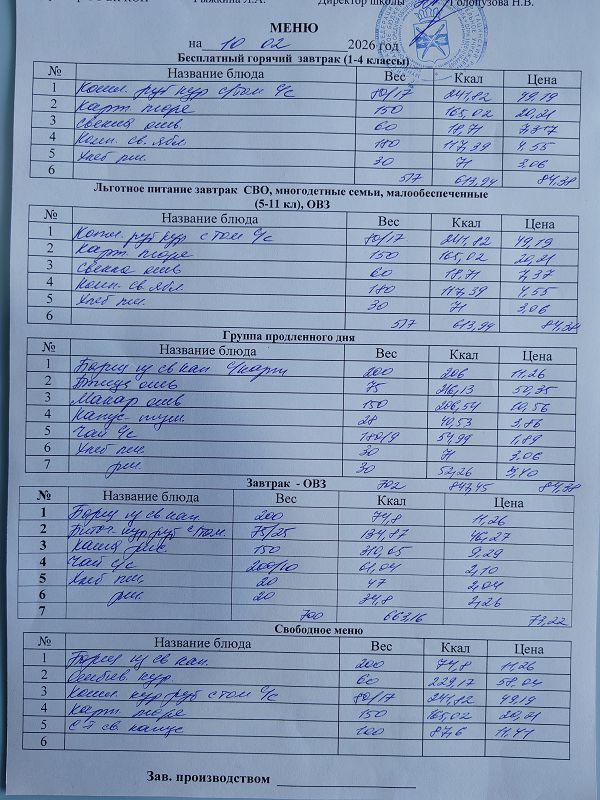 Рыжкина Л.А. Директор школы Голопузова Н.В.
МЕНЮ
на 10 02 2026 год
Бесплатный горячий завтрак (1-4 классы)
№ Название блюда Вес Ккал Цена
1 Котл. руб кур с том с/с 80/17 241,82 49,19
2 Карт. пюре 150 165,02 20,21
3 Свекла отв. 60 18,71
4 Комп. св. ябл. 180 117,39 4,55
5 Хлеб пш. 30 71 3,06
6 517 613,94 84,38
Льготное питание завтрак СВО, многодетные семьи, малообеспеченные
(5-11 кл), ОВЗ
№ Название блюда Вес Ккал Цена
1 Котл. руб кур с том с/с 80/17 241,82 49,19
2 Карт. пюре 150 165,02 20,21
3 Свекла отв 60 18,71 7,37
4 Комп. св. ябл. 180 117,39 4,55
5 Хлеб пш. 30 71 3,06
6 517 613,94 84,38
Группа продленного дня
№ Название блюда Вес Ккал Цена
1 Борщ из св кап с/карт 200 206 11,26
2 Птица отв 75 216,13 50,35
3 Макар отв 150 206,54 10,56
4 Капус- туш. 28 40,53 3,86
5 Чай с/с 180/9 54,99 1,89
6 Хлеб пш. 30 71 3,06
7 рж. 30 52,26 3,40
702 847,45 84,38
Завтрак - ОВЗ
№ Название блюда Вес Ккал Цена
1 Борщ из св кап. 200 74,8 11,26
2 Биточ- кур руб с том. 75/25 134,87 46,27
3 Каша рис. 150 310,65 9,29
4 Чай с/с 200/10 61,04 2,10
5 Хлеб пш. 20 47 2,04
6 рж. 20 34,8 2,26
7 700 663,16 73,22
Свободное меню
№ Название блюда Вес Ккал Цена
1 Борщ из св кап. 200 74,8 11,26
2 кур. 60 229,17 58,04
3 Котл. кур руб с том с/с 80/17 241,82 49,19
4 Карт. пюре 150 165,02 20,21
5 св. капус 100 87,6 11,41
6
Зав. производством